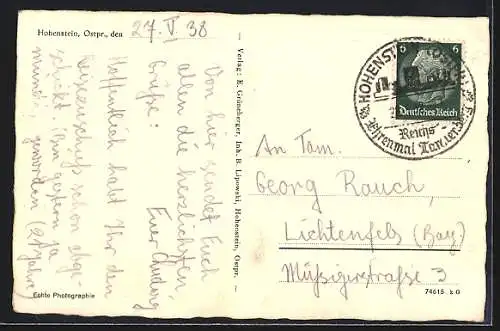 Hohenstein, Ostpr., den 27. V. 38
Von hier sendet Euch
allen die herzlichsten
Grüße. Euer Ludwig
Hoffentlich habt Ihr den
schon abge-
schickt. Bin gestern ja
geworden (21 Jahre)
Echte Photographie
Verlag: E. Grünberger, Inh. B. Lipowski, Hohenstein, Ostpr.
HOHENSTEIN
Reichs-
Ehrenmal Tannenberg
6 6
Deutsches Reich
An Fam.
Georg Rauch,
Lichtenfels (Bay)
straße 3
74615 k G